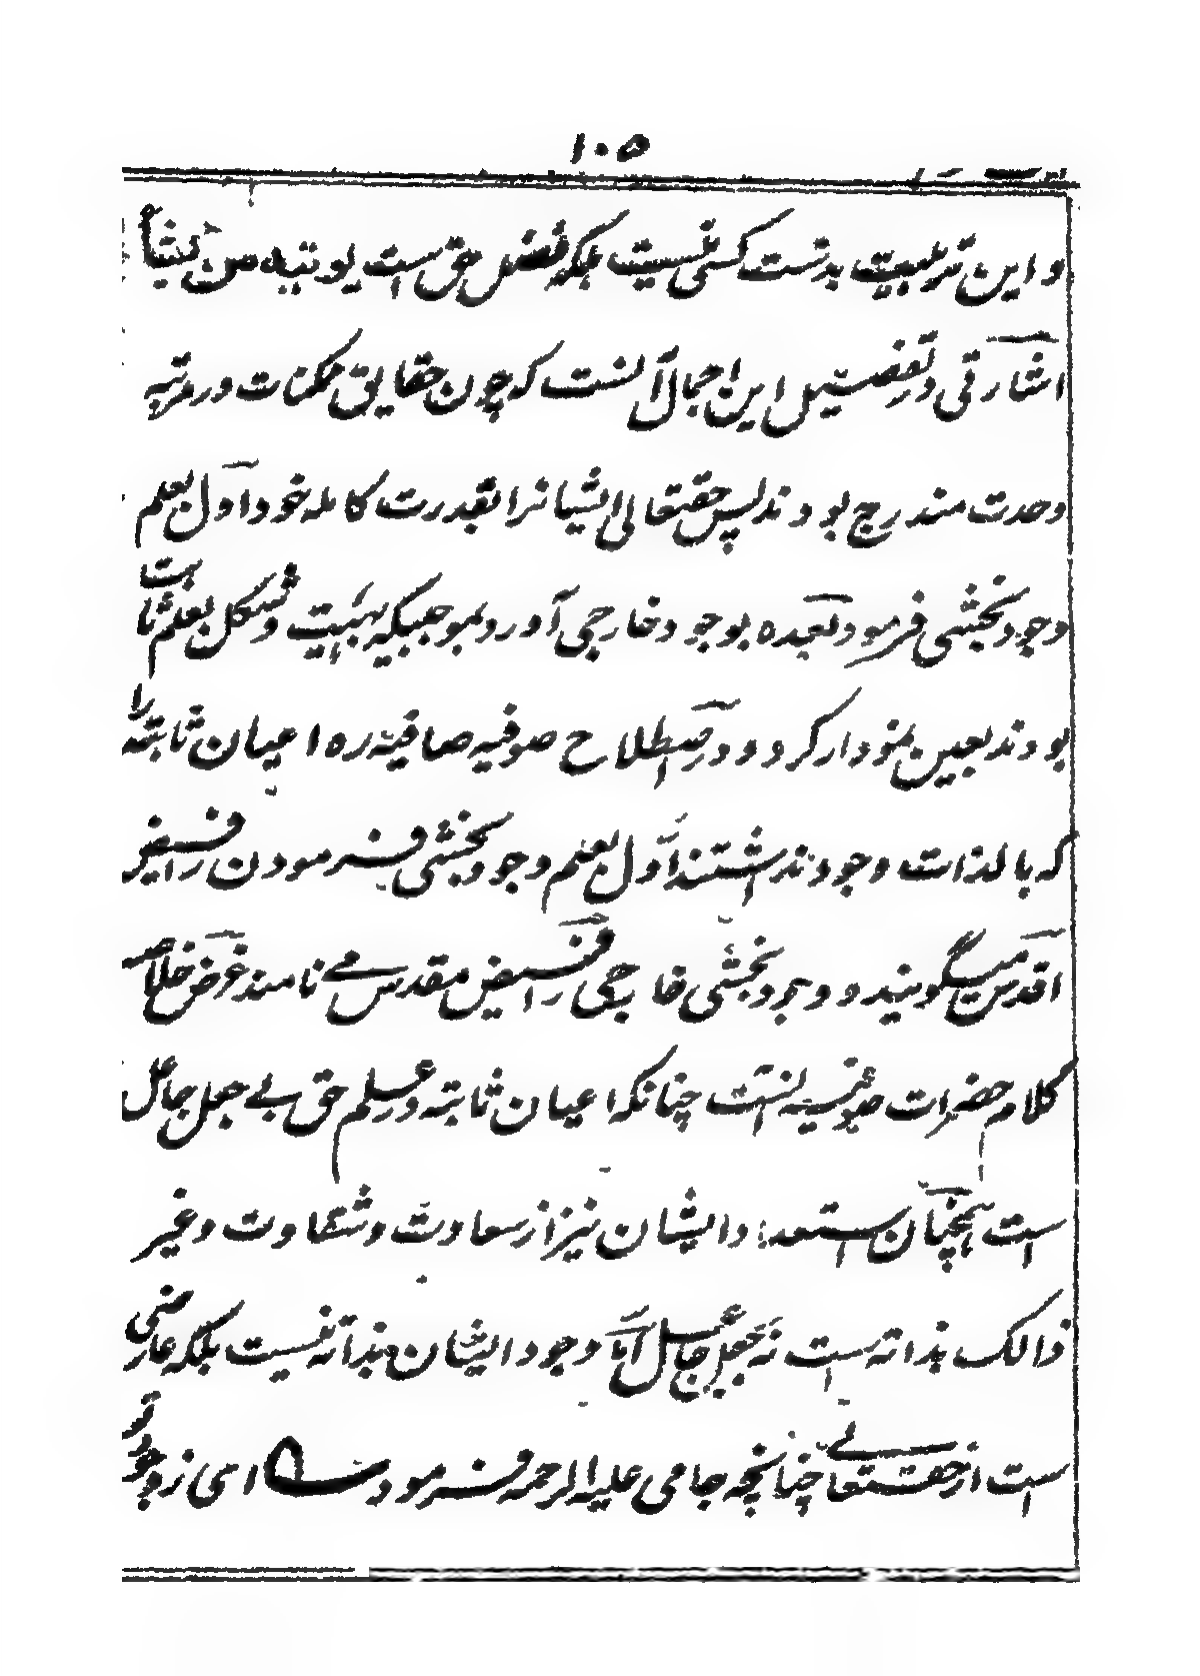 ۱۰۵
و این تربیت بدست کسی نیست بلکه فضل حق است یوتیه من یشاء
اشارتی در تفصیل این اجمال آنست که چون حقایق ممکنات در مرتبه
وحدت مندرج بودند پس حقتعالی ایشانرا بقدرت کامله خود اول بعلم
وجود بخشی فرمود بعده بوجود خارجی آورد بموجبیکه هیئیت و شکل بعلم ثابت
بودند بعین نمودار کرد و در اصطلاح صوفیه صافیه ره اعیان ثابته را
که بالذات وجود نداشتند اول بعلم وجود بخشی فرمودن را فیض
اقدس میگویند و وجود بخشی خارجی را فیض مقدس مے نامند غرض خلاصه
کلام حضرات صوفیه انست چنانکه اعیان ثابته در علم حق بے جعل جاعل
است همچنان استعداد ایشان نیز از سعادت و شقاوت و غیر
ذالک بذاته است نه بجعل جاعل اما وجود ایشان بذاته نیست بلکه عارضی
است از حقتعالے چنانچه جامی علیه الرحمه فرمود ے ای ز وجود تو